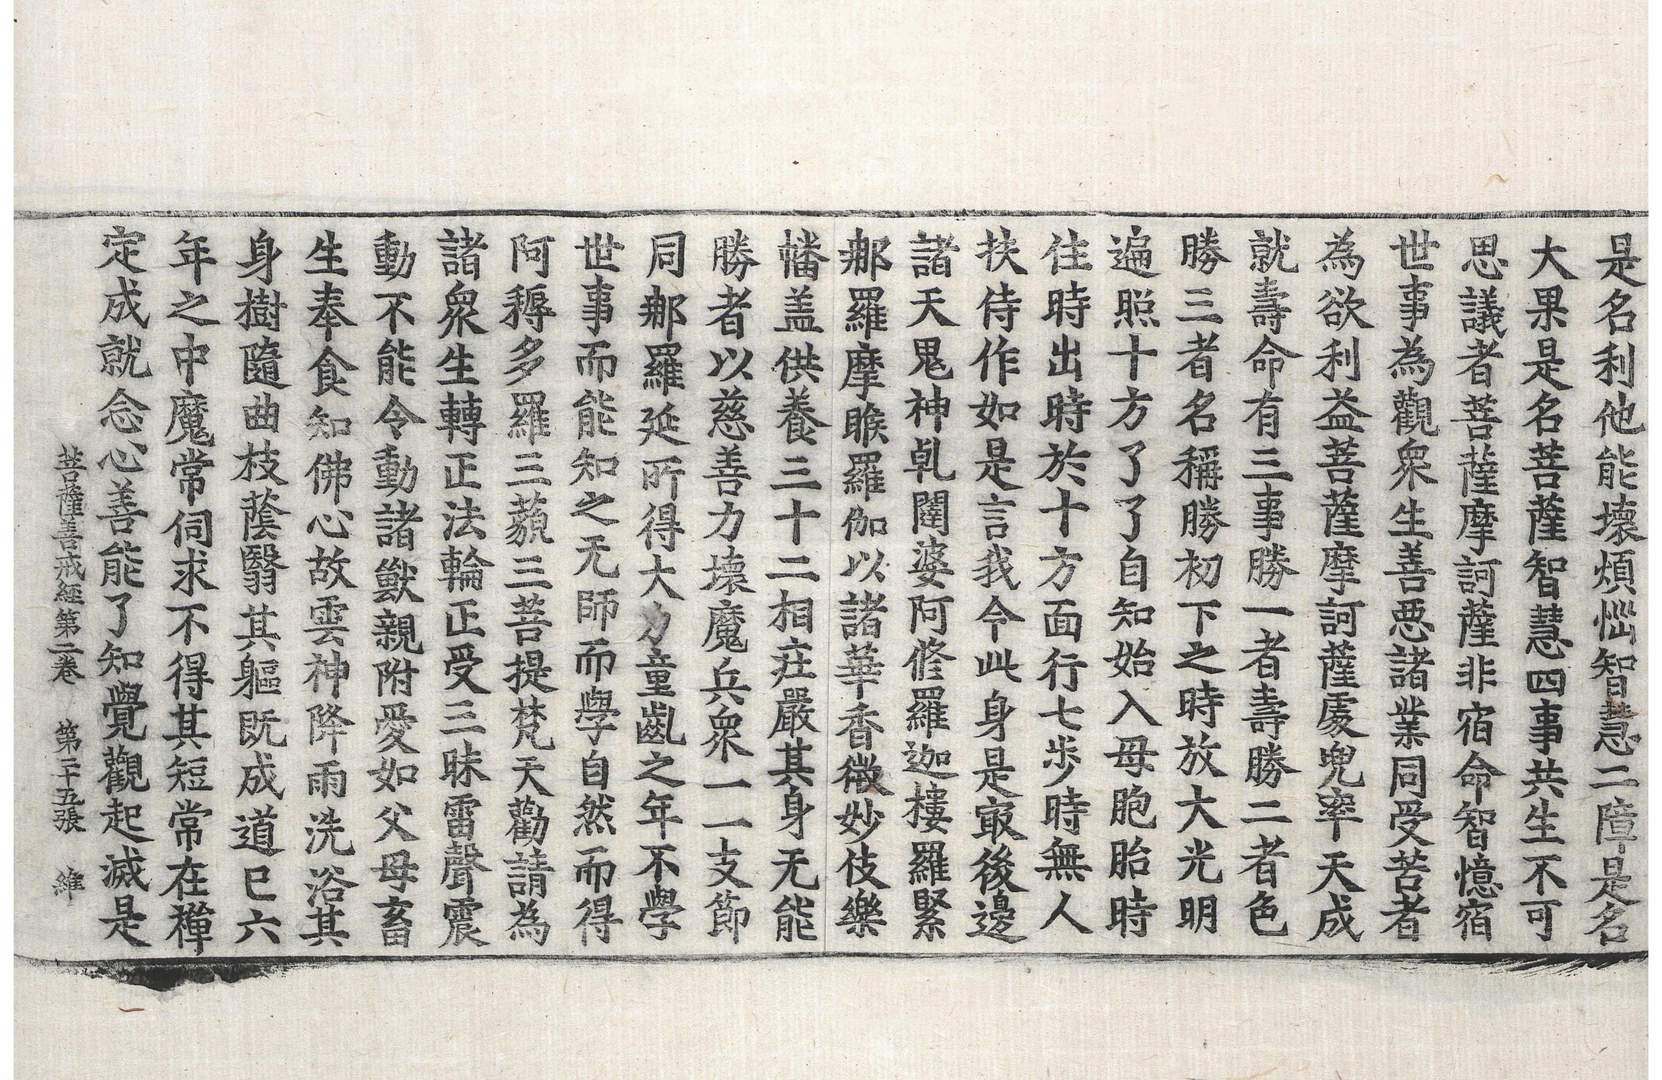 是名利他能壞煩惱智慧二障是名
大果是名菩薩智慧四事共生不可
思議者菩薩摩訶薩非宿命智憶宿
世事為觀衆生善惡諸業同受苦者
為欲利益菩薩摩訶薩處兜率天成
就壽命有三事勝一者壽勝二者色
勝三者名稱勝初下之時放大光明
遍照十方了了自知始入母胞胎時
住時出時於十方面行七步時無人
扶侍作如是言我今此身是寂後邊
諸天鬼神乹闥婆阿脩羅迦樓羅緊
那羅摩睺羅伽以諸華香微妙伎樂
幡盖供養三十二相庄嚴其身无能
勝者以慈善力壞魔兵衆一一支節
同那羅延所得大力童齔之年不學
世事而能知之无師而學自然而得
阿耨多羅三藐三菩提梵天勸請為
諸衆生轉正法輪正受三昧雷聲震
動不能令動諸獸親附愛如父母畜
生奉食知佛心故雲神降雨洗浴其
身樹隨曲枝蔭翳其軀既成道已六
年之中魔常伺求不得其短常在禪
定成就念心善能了知覺觀起滅是
菩薩善戒經第二卷 第二十五張 維